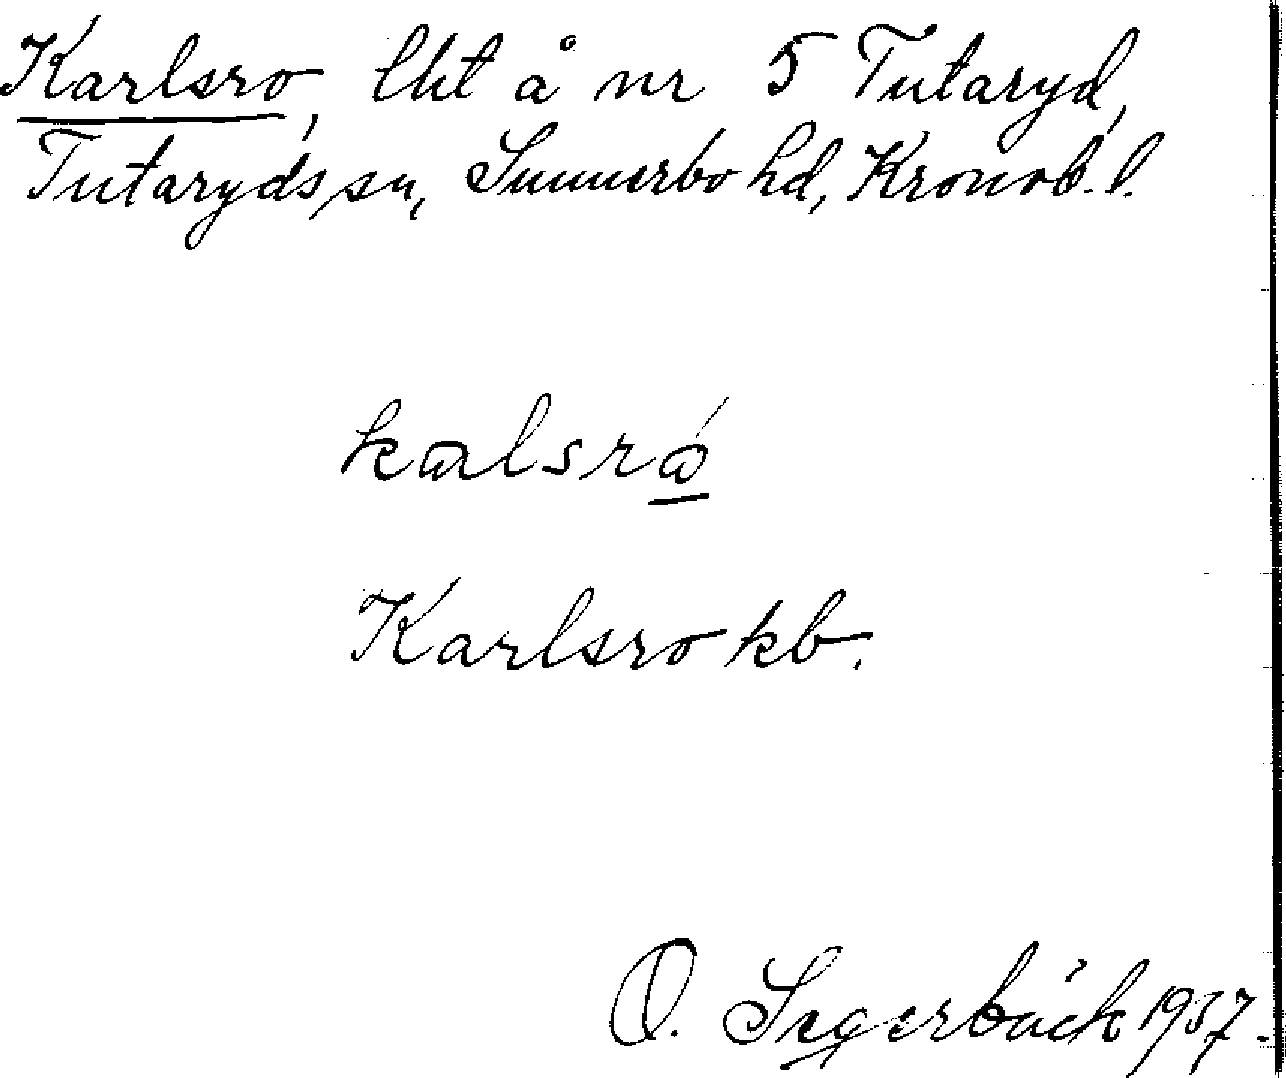 Karlsro, lht å nr 5 Tutaryd,
Tutaryds sn, Sunnerbo hd, Kronob. l.
kalsrȯ́
Karlsro kb.
O. Segerbäck 1937.